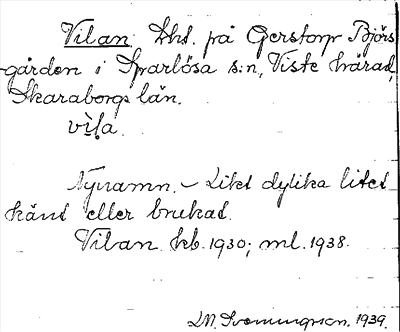 Vilan Lht. på Gerstorp Björs-
gården i Sparlösa s:n, Viste härad,
Skaraborgs län.
vila.
Nynamn. – Likt dylika litet
känt eller brukat.
Vilan kb. 1930; ml. 1938.
1939.